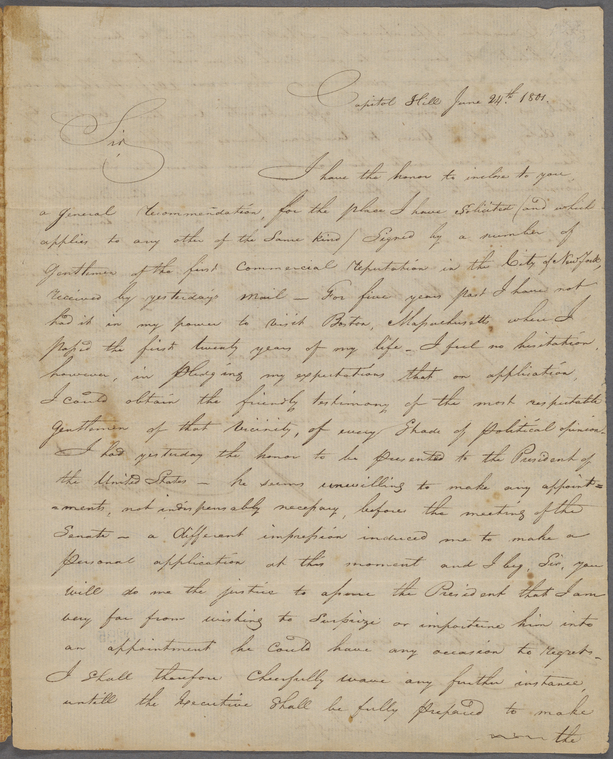 Capitol Hill June 24th. 1801.
Sir
I have the honor to inclose to you,
a general recommendation, for the place I have solicited (and which
applies to any other of the same kind) signed by a number of
Gentlemen of the first Commercial reputation in the City of New York,
received by yesterdays mail — For five years past I have not
had it in my power to visit Boston, Massachusetts where I
passed the first twenty years of my life — I feel no hesitation,
however, in pledging my expectations that on application,
I could obtain the friendly testimony of the most respectable
Gentlemen of that vicinity, of every shade of political opinion.
I had yesterday the honor to be presented to the President of
the United States — he seems unwilling to make any appoint=
=ments, not indispensably necessary, before the meeting of the
Senate — a different impression induced me to make a
personal application at this moment and I beg, Sir, you
will do me the justice to assure the President that I am
very far from wishing to surprize or importune him into
an appointment he could have any occasion to regret —
I shall therefore cheerfully wave any further instance,
untill the Executive shall be fully prepared to make
the